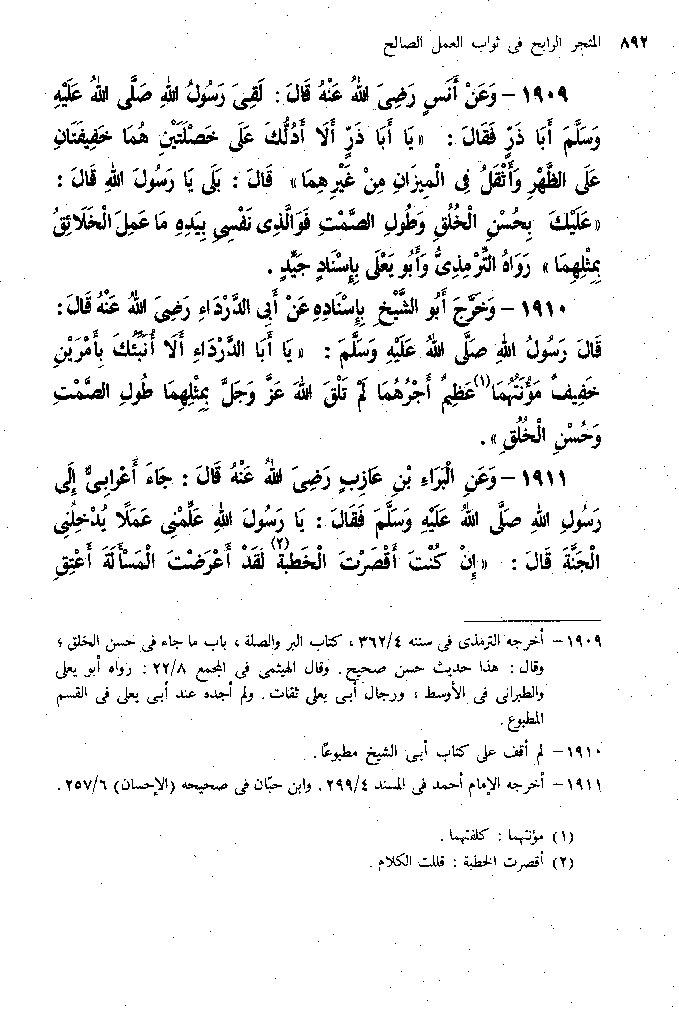 ٨٩٢ المتجر الرابح فى ثواب العمل الصالح
١٩٠٩ - وَعَنْ أَنَسٍ رَضِىَ اللهُ عَنْهُ قَالَ : لَقِىَ رَسُولُ اللهِ صَلَّى اللهُ عَلَيْهِ
وَسَلَّمَ أَبَا ذَرٍّ فَقَالَ : « يَا أَبَا ذَرٍّ أَلَا أَدُلُّكَ عَلَى خَصْلَتَيْنِ هُمَا خَفِيفَتَانِ
عَلَى الظَّهْرِ وَأَثْقَلُ فِى الْمِيزَانِ مِنْ غَيْرِهِمَا » قَالَ : بَلَى يَا رَسُولَ اللهِ قَالَ :
« عَلَيْكَ بِحُسْنِ الْخُلُقِ وَطُولِ الصَّمْتِ فَوَالَّذِى نَفْسِى بِيَدِهِ مَا عَمِلَ الْخَلَائِقُ
بِمِثْلِهِمَا » رَوَاهُ التِّرْمِذِىُّ وَأَبُو يَعْلَى بِإِسْنَادٍ جَيِّدٍ .
١٩١٠ - وَخَرَّجَ أَبُو الشَّيْخِ بِإِسْنَادِهِ عَنْ أَبِى الدَّرْدَاءِ رَضِىَ اللهُ عَنْهُ قَالَ :
قَالَ رَسُولُ اللهِ صَلَّى اللهُ عَلَيْهِ وَسَلَّمَ : « يَا أَبَا الدَّرْدَاءِ أَلَا أُنَبِّئُكَ بِأَمْرَيْنِ
خَفِيفٌ مَؤُنَتُهُمَا (١) عَظِيمٌ أَجْرُهُمَا لَمْ تَلْقَ اللهَ عَزَّ وَجَلَّ بِمِثْلِهِمَا طُولِ الصَّمْتِ
وَحُسْنِ الْخُلُقِ » .
١٩١١ - وَعَنِ الْبَرَاءِ بْنِ عَازِبٍ رَضِىَ اللهُ عَنْهُ قَالَ : جَاءَ أَعْرَابِىٌّ إِلَى
رَسُولِ اللهِ صَلَّى اللهُ عَلَيْهِ وَسَلَّمَ فَقَالَ : يَا رَسُولَ اللهِ عَلِّمْنِى عَمَلًا يُدْخِلُنِى
الْجَنَّةَ قَالَ : « إِنْ كُنْتَ أَقْصَرْتَ الْخُطْبَةَ (٢) لَقَدْ أَعْرَضْتَ الْمَسْأَلَةَ أَعْتِقِ
١٩٠٩ - أخرجه الترمذى فى سننه ٣٦٢/٤ ، كتاب البر والصلة ، باب ما جاء فى حسن الخلق ؛
وقال : هذا حديث حسن صحيح . وقال الهيثمى فى المجمع ٢٢/٨ : رواه أبو يعلى
والطبرانى فى الأوسط ، ورجال أبى يعلى ثقات . ولم أجده عند أبى يعلى فى القسم
المطبوع .
١٩١٠ - لم أقف على كتاب أبى الشيخ مطبوعًا .
١٩١١ - أخرجه الإمام أحمد فى المسند ٢٩٩/٤ . وابن حبّان فى صحيحه (الإحسان) ٢٥٧/٦ .
(١) مؤنتهما : كلفتهما .
(٢) أقصرت الخطبة : قللت الكلام .